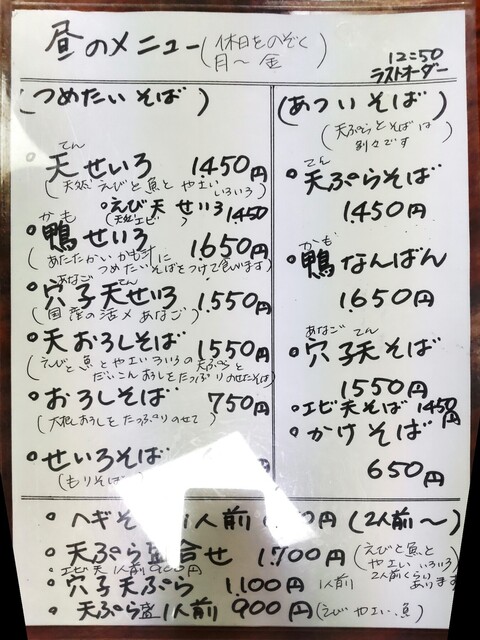 昼のメニュー(休日をのぞく
月〜金)
12=50
ラストオーダー
(つめたいそば)
てん
天せいろ 1.450円
(天ぷらえびと魚とやさいいろいろ)
えび天せいろ 1450
(天ぷらエビ)
かも
鴨せいろ 1.650円
(あたたかいかも汁に
つめたいそばをつけて食べます)
あなご てん
穴子天せいろ 1.550円
(国産の活〆あなご)
天おろしそば 1550円
(えびと魚とやさいいろいろの天ぷらと
だいこんおろしをたっぷりのせたそば)
おろしそば 750円
(大根おろしをたっぷりのせて)
せいろそば 円
(もりそば
(あついそば)
(天ぷらとそばは
別々です)
てん
天ぷらそば
1450円
かも
鴨なんばん
1.650円
あなご てん
穴子天そば
1550円
エビ天そば 1450円
かけそば
650円
ヘギそ 1人前 円(2人前〜)
天ぷら盛合せ 1.700円(えびと魚と
やさいいろいろ
2人前くらい
あります)
エビ天1人前900円
穴子天ぷら 1.100円 1人前
天ぷら盛1人前 900円(えびやさい、魚)